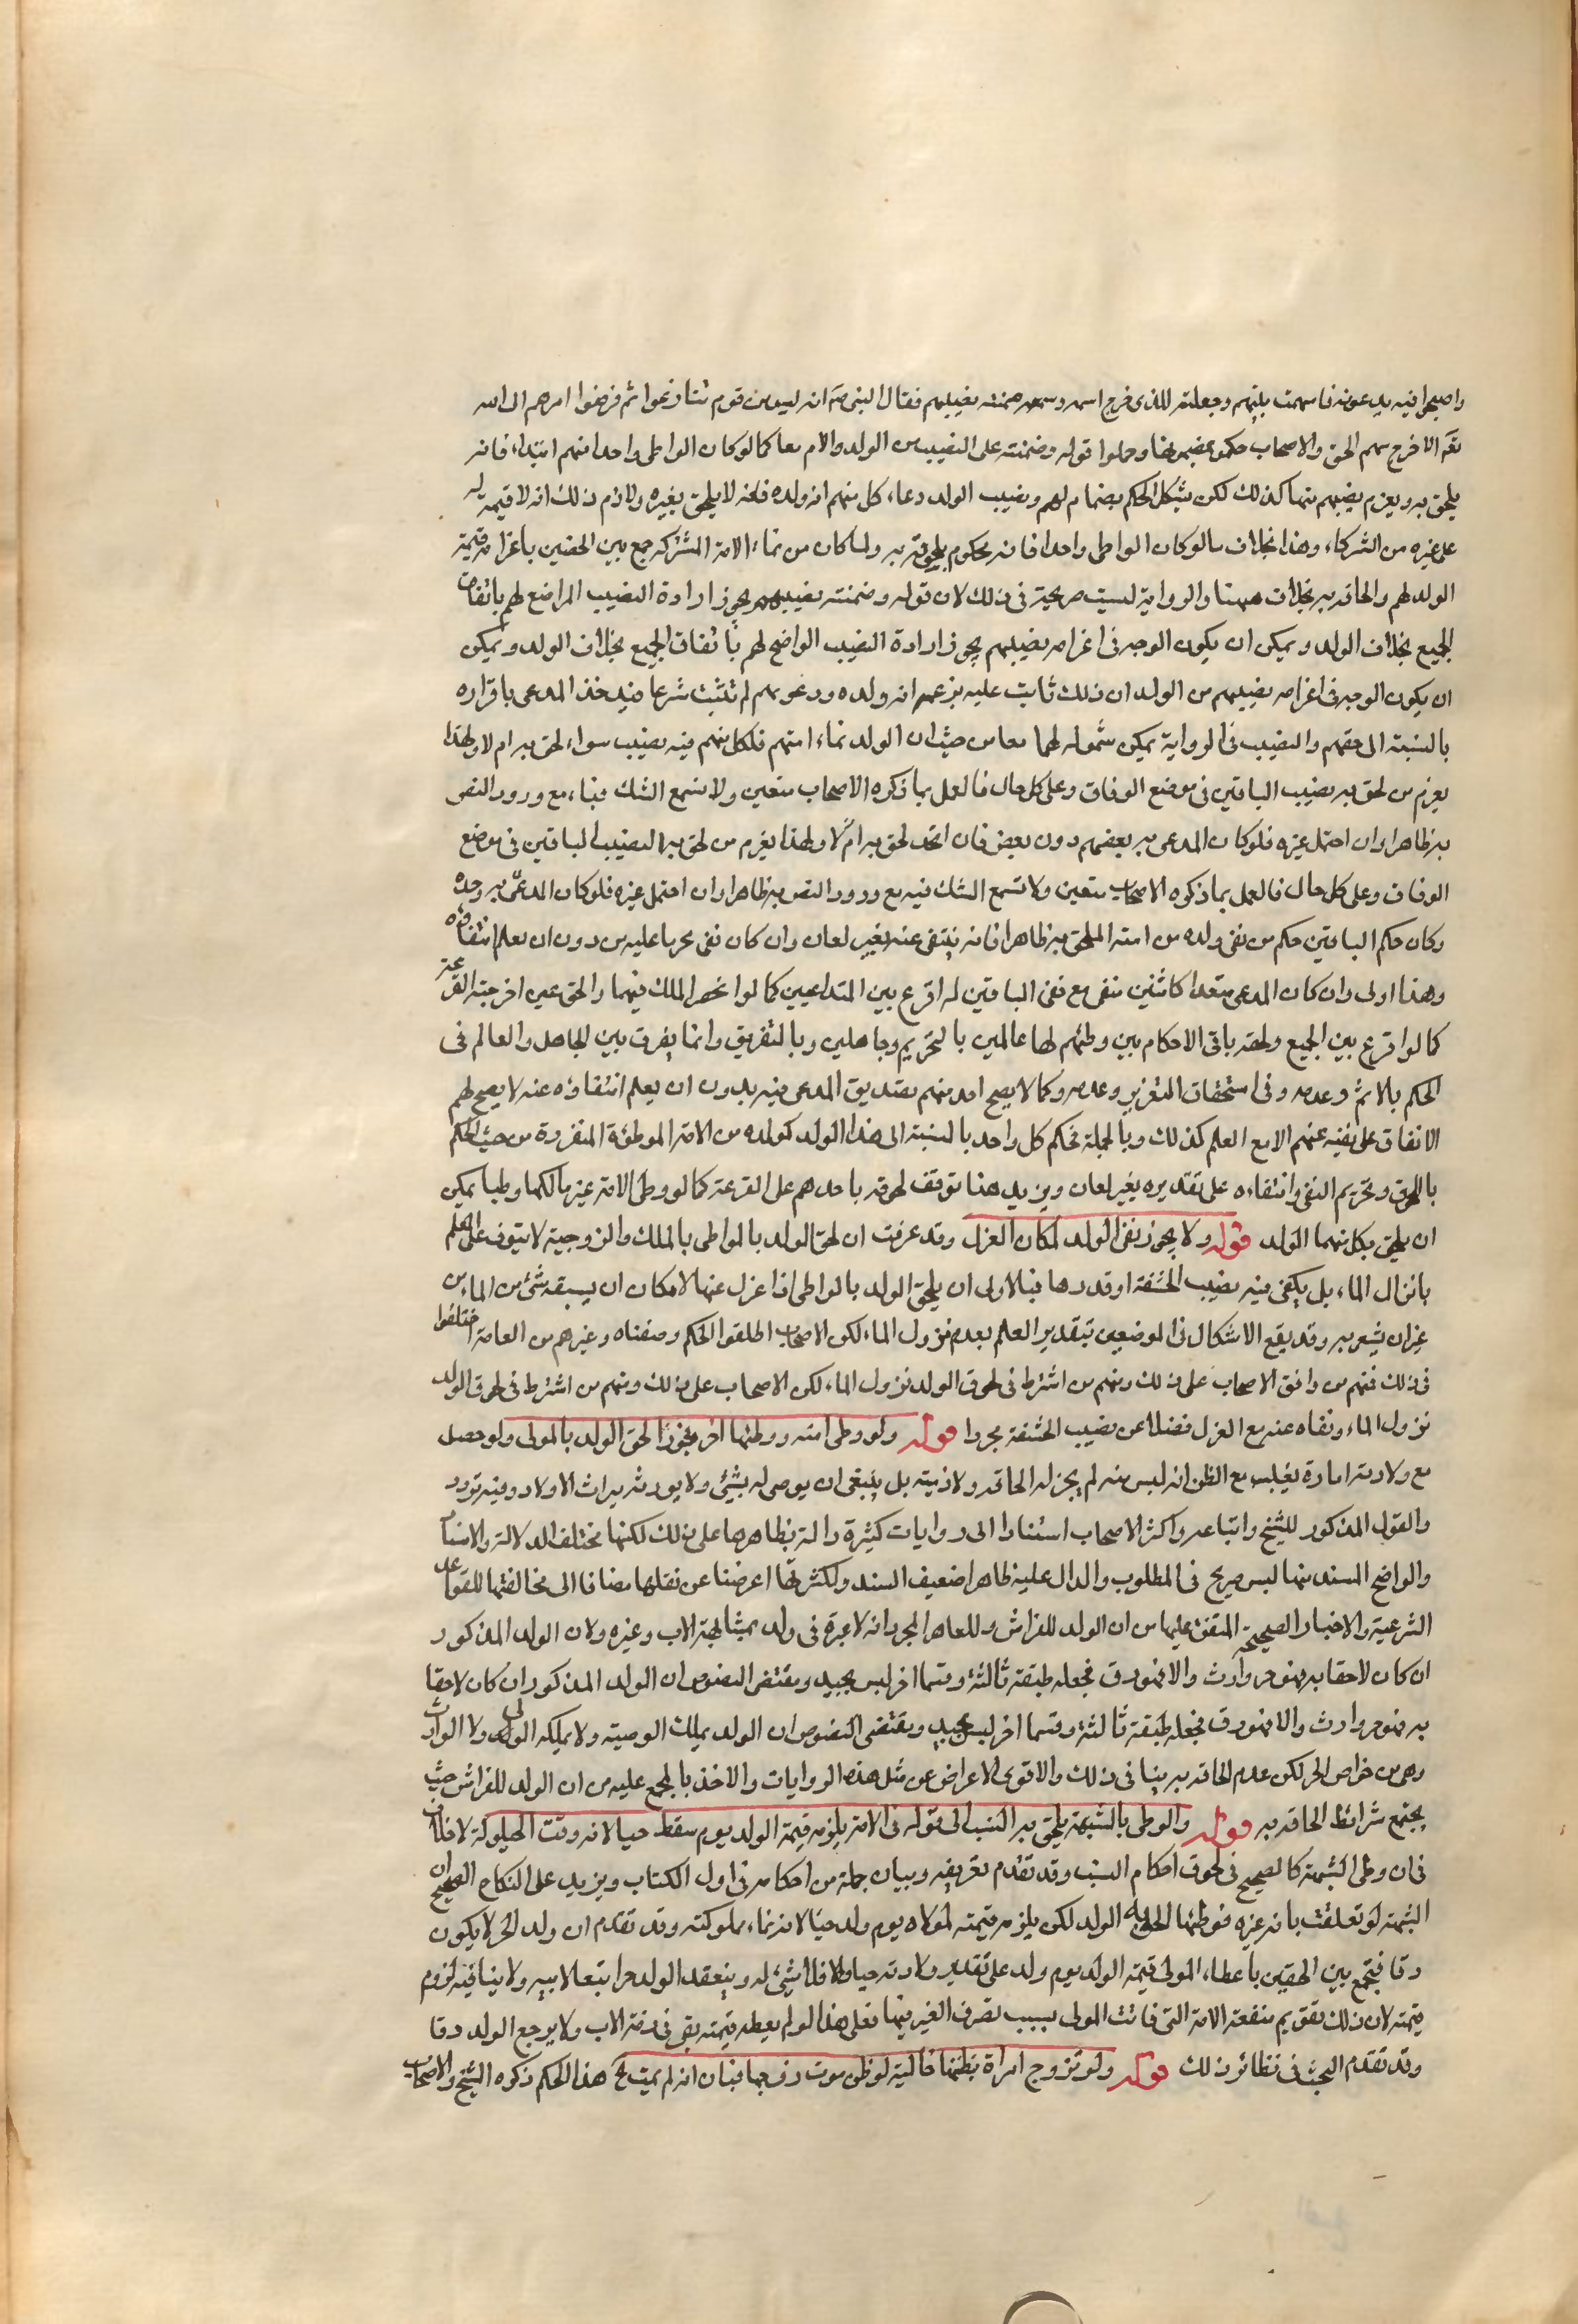 واصبحوا فيه يدعونه فاسهمت بينهم وجعلته للذى خرج اسمه وضمنته نصيبهم فقال النبى ص انه ليس من قوم تنازعوا ثم فوضوا امرهم الى الله
تعالى الا خرج سهم الحق والاصحاب حكموا بمضمونها وحملوا قوله وضمنته على النصيب من الولد والام معا كما لو كان الواطى واحدا منهم ابتداء فانه
يلحق به ويغرم نصيبهم منهما كذلك لكن يشكل الحكم بضمانه لهم ونصيب الولد دعاء كل منهم انه ولده فانه لا يلحق بغيره ولازم ذلك انه لا قيمة له
على غيره من الشركاء وهذا بخلاف ما لو كان الواطى واحدا فانه محكوم بلحوقه به ولما كان من نماء الامة المشتركة جمع بين الحقين باغرامه قيمة
الولد لهم والحاقه به بخلاف ههنا والرواية ليست صريحة فى ذلك لان قوله وضمنته نصيبهم يجوز ارادة النصيب الواضح لهم باتفاق
الجميع بخلاف الولد ويمكن ان يكون الوجه فى اغرامه نصيبهم يجوز ارادة النصيب الواضح لهم باتفاق الجميع بخلاف الولد ويمكن
ان يكون الوجه فى اغرامه نصيبهم من الولد ان ذلك ثابت عليه بزعمه انه ولده ودعويهم لم تثبت شرعا فيؤخذ المدعى باقراره
بالنسبة الى حقهم والنصيب فى الرواية يمكن شموله لهما معا من حيث ان الولد نماء امتهم فلكل منهم فيه نصيب سواء لحق به ام لا ولهذا
يغرم من لحق به نصيب الباقين فى موضع الوفاق وعلى كل حال فالعمل بما ذكره الاصحاب متعين ولا يسمع الشك فيه مع ورود النص
به ظاهرا وان احتمل غيره فلو كان المدعى به بعضهم دون بعض فان اتحد لحق به ام لا ولهذا يغرم من لحق به النصيب الباقين فى موضع
الوفاق وعلى كل حال فالعمل بما ذكره الاصحاب متعين ولا تسمع الشك فيه مع ورود النص به ظاهرا وان احتمل غيره فلو كان المدعى به وحده
وكان حكم الباقين حكم من نفى ولده من امته الملحق به ظاهرا فانه ينتفى عنه بغير لعان وان كان نفى محرما عليه من دون ان يعلم انتفاؤه
وهذا اولى وان كان المدعى متعددا كاثنين منهم مع نفى الباقين له اقرع بين المتداعيين كما لو انحصر الملك فيهما والحق بمن اخرجته القرعة
كما لو اقرع بين الجميع ولحقه باقى الاحكام بين وطئهم لها عالمين بالتحريم وجاهلين وبالتفريق وانما يفرق بين الجاهل والعالم فى
الحكم بالاثم وعدمه وفى استحقاق التعزير وعدمه وكما لا يصح احد منهم تصديق المدعى فيه بدون ان يعلم انتفاؤه عنه لا يصح لهم
الاتفاق على نفيه عنهم الا مع العلم كذلك وبالجملة فحكم كل واحد بالنسبة الى هذا الولد كولده من الامة الموطئة المنفردة من حيث الحكم
باللحوق وتحريم النفى وانتفاءه على تقديره بغير لعان ويزيد هنا توقف لحوقه باحدهم على القرعة كما لو وطئ الامة غير مالكها وطيا يمكن
ان يلحق بكل منهما الولد قوله ولا يجوز نفى الولد لمكان العزل وقد عرفت ان لحق الولد بالواطى بالملك والزوجية لا يتوقف على العلم
بانزال الماء بل يكفى فيه نصيب الحشفة او قدرها فبالاولى ان يلحق الولد بالواطى اذا عزل عنها لامكان ان يسبقه شئ من الماء من
غير ان يشعر به وقد يقع الاشكال فى الموضعين بتقدير العلم بعدم نزول الماء لكن الاصحاب اطلقوا الحكم وصفناه وغيرهم من العامة اختلفوا
فى ذلك فمنهم من وافق الاصحاب على ذلك ومنهم من اشترط فى لحوق الولد نزول الماء لكن الاصحاب على ذلك ومنهم من اشترط فى لحوق الولد
نزول الماء ونفاه عنه مع العزل فضلا عن نصيب الحشفة مجردا قوله ولو وطى امته ووطئها اخر فجورا لحق الولد بالمولى ولو حصل
مع ولادته امارة يغلب مع الظن انه ليس منه لم يجز له الحاقه ولا نفيه بل ينبغى ان يوصى له بشيئ ولا يورثه ميراث الاولاد وفيه تردد
والقول المذكور للشيخ واتباعه واكثر الاصحاب استنادا الى روايات كثيرة دالة بظاهرها على ذلك لكنها مختلف الدلالة والاسناد
والواضح السند منها ليس صريح فى المطلوب والدال عليه ظاهرا ضعيف السند ولكثرتها اعرضنا عن نقلها مضافا الى مخالفتها للقواعد
الشرعية والاخبار الصحيحة المتفق عليها من ان الولد للفراش وللعاهر الحجر وانه لا عبرة فى ولد بمشابهة الاب وغيره ولان الولد المذكور
ان كان لاحقا به فهو حر وارث والا فهو رق فجعله طبقة ثالثة وقسما اخر ليس بجيد ومقتضى النصوص ان الولد المذكور ان كان لاحقا
به فهو حر وارث والا فهو رق فجعله طبقة ثالثة وقسما اخر ليس بجيد ويقتضى النصوص ان الولد يملك الوصية ولا يملكه المولى ولا الوارث
وهى من خواص الحر لكن عدم الحاقه به ينافى ذلك والاقوى الاعراض عن مثل هذه الروايات والاخذ بالمجمع عليه من ان الولد للفراش حيث
يجتمع شرائط الحاقه به قوله والوطى بالشبهة يلحق به النسب الى قوله فى الامة يلزمه قيمة الولد يوم سقط حيا لانه وقت الحيلولة لا خلاف
فى ان وطى الشبهة كالصحيح فى لحوق احكام النسب وقد تقدم تعريفه وبيان جملة من احكامه فى اول الكتاب ويزيد على النكاح الصحيح ان
الشبهة لو تعلقت بامة غيره فوطئها لحق به الولد لكن يلزمه قيمته لمولاه يوم ولد حيا لانه نماء مملوكته وقد تقدم ان ولد الحر لا يكون
رقا فيجمع بين الحقين باعطاء المولى قيمة الولد يوم ولد على تقدير ولادته حيا والا فلا شيئ له وينعقد الولد حرا تبعا لابيه ولا ينافيه لزوم
قيمته لان ذلك تقويم منفعة الامة التى فاتت المولى بسبب تصرف الغير فيها فعلى هذا لو لم يعطه قيمته بقى فى ذمة الاب ولا يرجع الولد رقا
وقد تقدم البحث فى نظائر ذلك قوله ولو تزوج امراة بظنها خالية لو ظن موت زوجها فبان انه لم يمت الخ هذا الحكم ذكره الشيخ والاصحاب